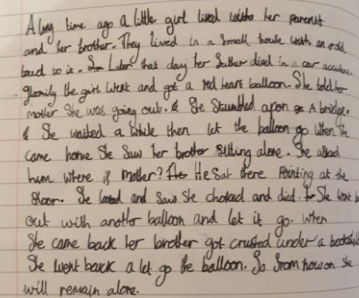 A long time ago a little girl lived with her parents
and her brother. They lived in a small house with an odd
to it. Later that day her father died in a car accident
the girl went and got a red heart balloon. She told her
mother She was going out. She Stumbled upon a bridge.
She waited a while then let the balloon go when She
came home She Saw her brother Sitting alone. She asked
him where is mother? He Sat there Pointing at the
floor. She looked and Saw She choked and died. She went
out with another balloon and let it go. when
She came back her brother got crushed under a bookshelf
She went back a let go the balloon. So from now on she
will remain alone.